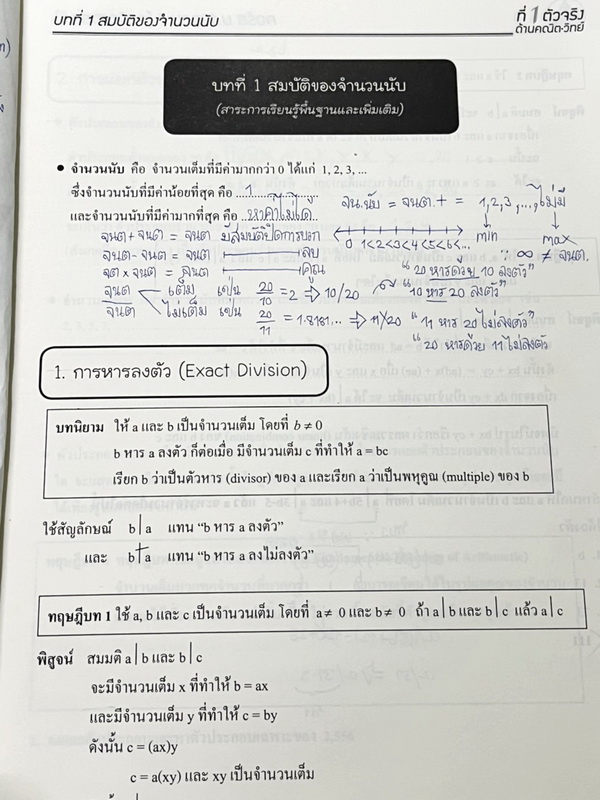 บทที่ 1 สมบัติของจำนวนนับ
ที่ 1 ตัวจริง
ด้านคณิต-วิทย์
บทที่ 1 สมบัติของจำนวนนับ
(สาระการเรียนรู้พื้นฐานและเพิ่มเติม)
• จำนวนนับ คือ จำนวนเต็มที่มีค่ามากกว่า 0 ได้แก่ 1, 2, 3, ...
ซึ่งจำนวนนับที่มีค่าน้อยที่สุด คือ ....1....
และจำนวนนับที่มีค่ามากที่สุด คือ ..หาค่าไม่ได้..
จน.นับ = จนต.+ = 1,2,3,...,ไม่มี
min max
จนต+จนต = จนต มีสมบัติปิดการบวก
จนต-จนต = จนต ลบ
จต x จนต = จนต คูณ
0 1<2<3<4<5<6<...
∵ ∞ ≠ จนต.
จนต เต็ม เช่น 20/10 = 2 ⇒ 10/20
"20 หารด้วย 10 ลงตัว"
"10 หาร 20 ลงตัว"
จนต ไม่เต็ม เช่น 20/11 = 1.8181... ⇒ 11∤20 "11 หาร 20 ไม่ลงตัว"
"20 หารด้วย 11 ไม่ลงตัว
1. การหารลงตัว (Exact Division)
บทนิยาม ให้ a และ b เป็นจำนวนเต็ม โดยที่ b ≠ 0
b หาร a ลงตัว ก็ต่อเมื่อ มีจำนวนเต็ม c ที่ทำให้ a = bc
เรียก b ว่าเป็นตัวหาร (divisor) ของ a และเรียก a ว่าเป็นพหุคูณ (multiple) ของ b
ใช้สัญลักษณ์ b | a แทน "b หาร a ลงตัว"
และ b ∤ a แทน "b หาร a ลงไม่ลงตัว"
ทฤษฎีบท 1 ใช้ a, b และ c เป็นจำนวนเต็ม โดยที่ a ≠ 0 และ b ≠ 0 ถ้า a | b และ b | c แล้ว a | c
พิสูจน์ สมมติ a | b และ b | c
จะมีจำนวนเต็ม x ที่ทำให้ b = ax
และมีจำนวนเต็ม y ที่ทำให้ c = by
ดังนั้น c = (ax)y
c = a(xy) และ xy เป็นจำนวนเต็ม